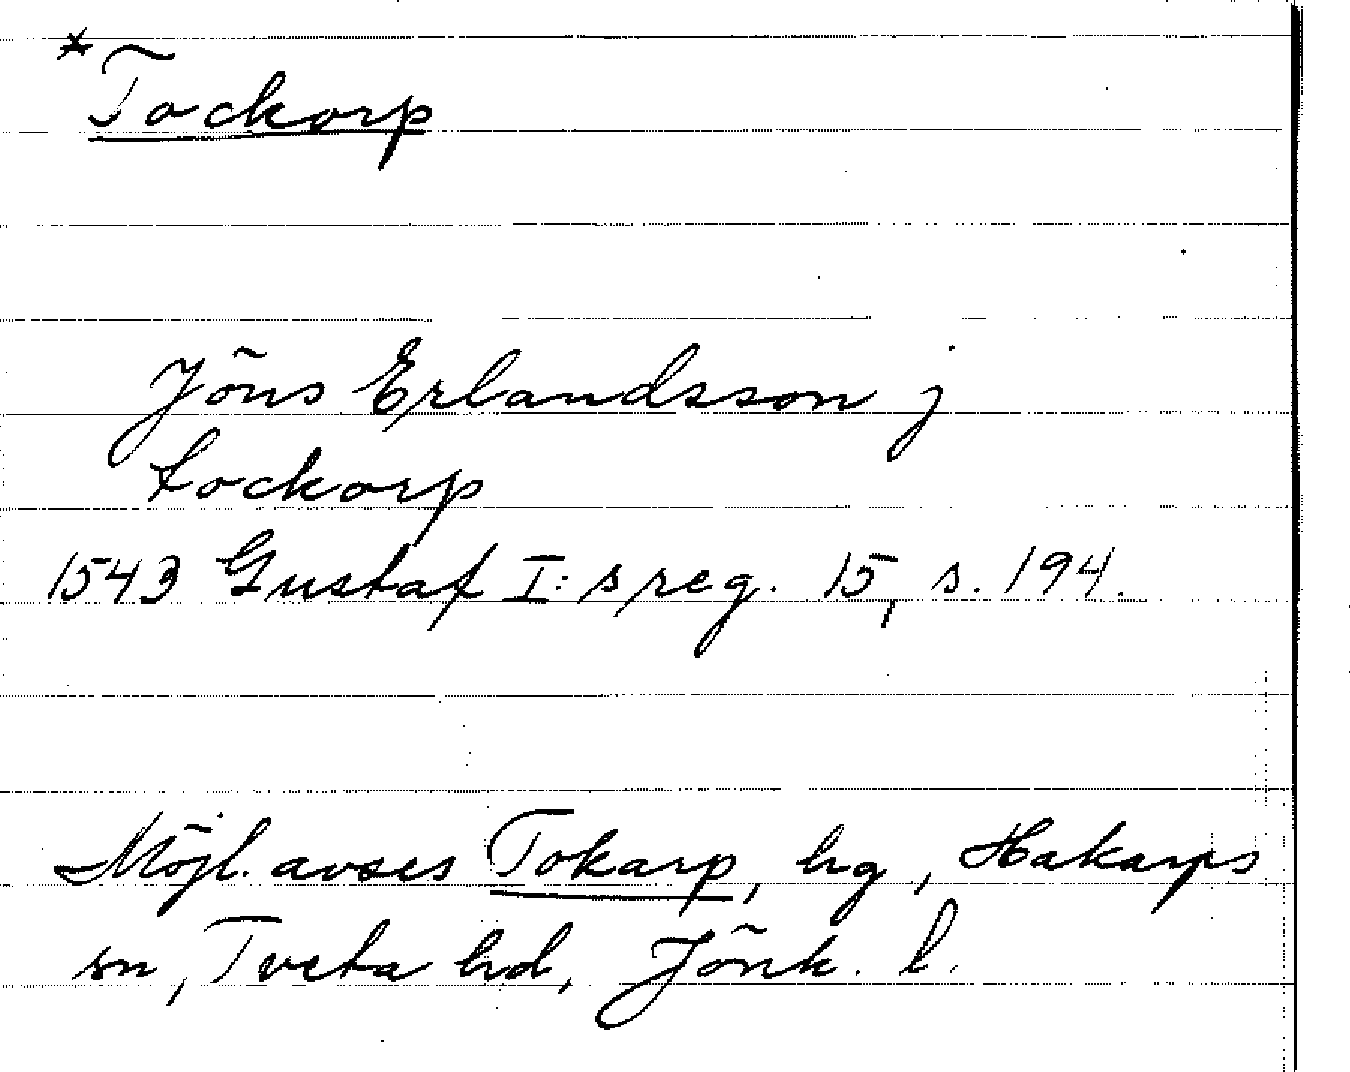 * Tockorp
Jöns Erlandsson j
tockorp
1543 Gustaf I:s reg. 15, s. 194.
Möjl. avses Tokarp, hg, Hakarps
sn, Tveta hd, Jönk. l.